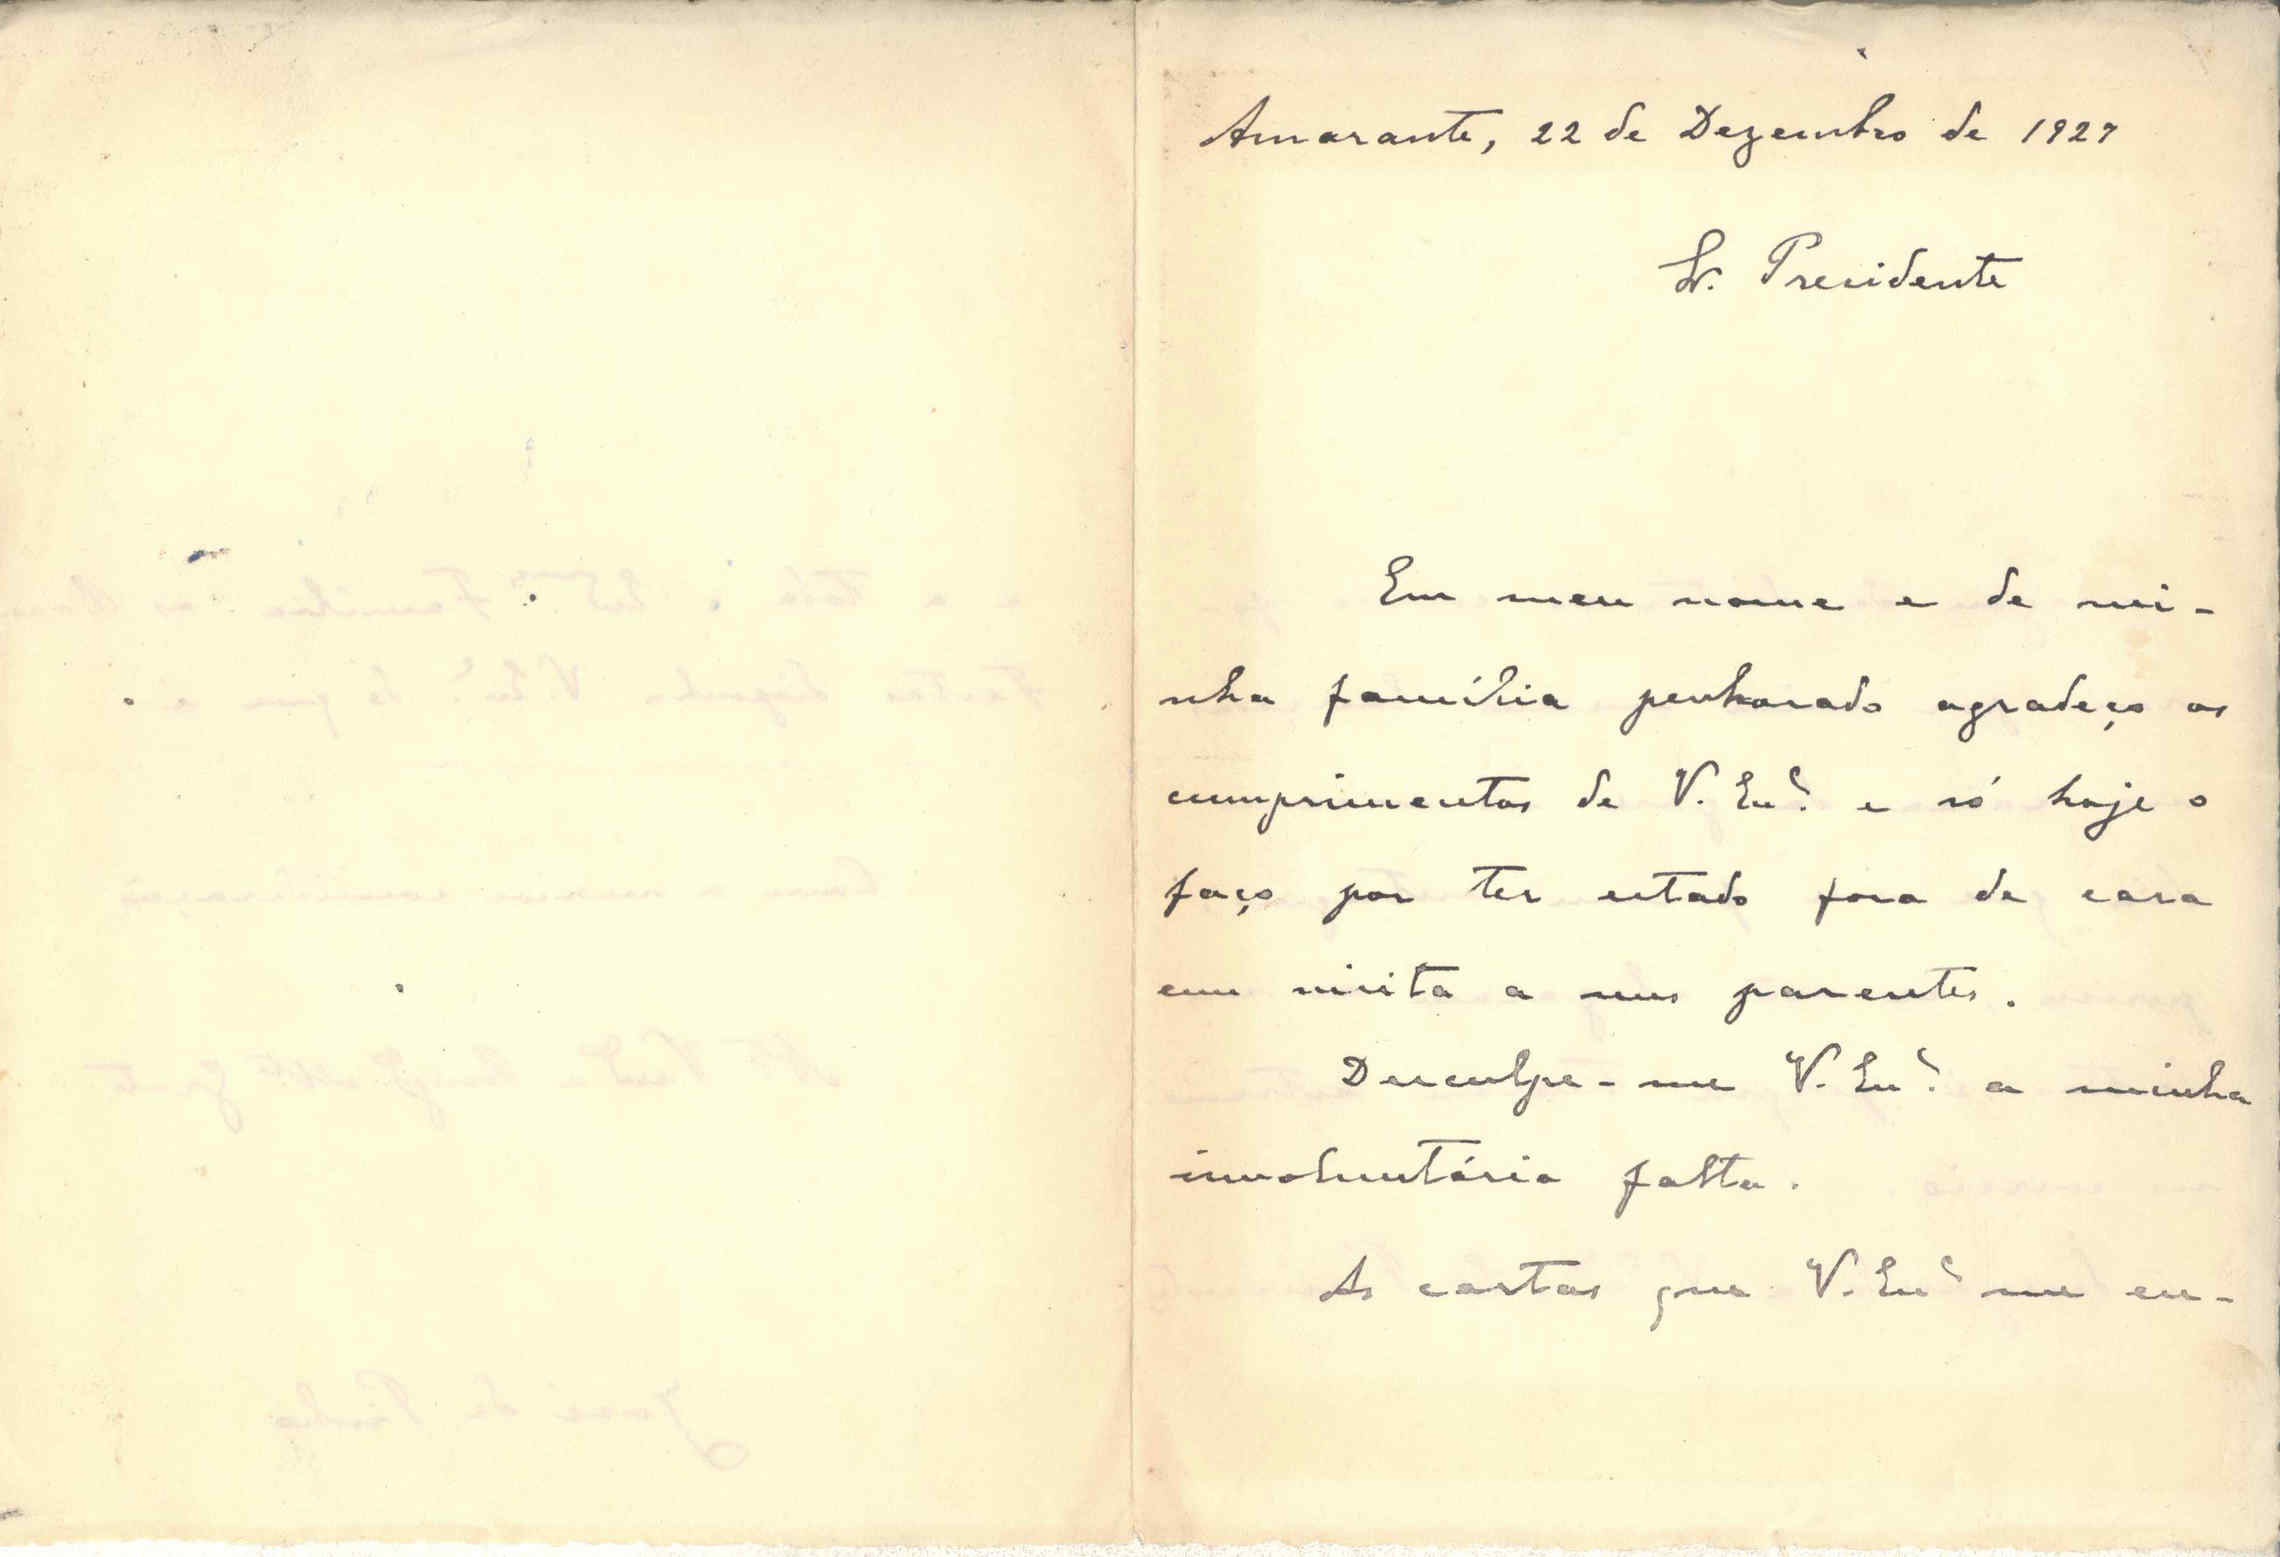 Amarante, 22 de Dezembro de 1927
Sr. Presidente
Em meu nome e de mi-
nha família penhorado agradeço os
cumprimentos de V. Exª. e só hoje o
faço por ter estado fora de casa
em visita a uns parentes.
Desculpe-me V. Exª. a minha
involuntária falta.
As cartas que V. Exª me en-